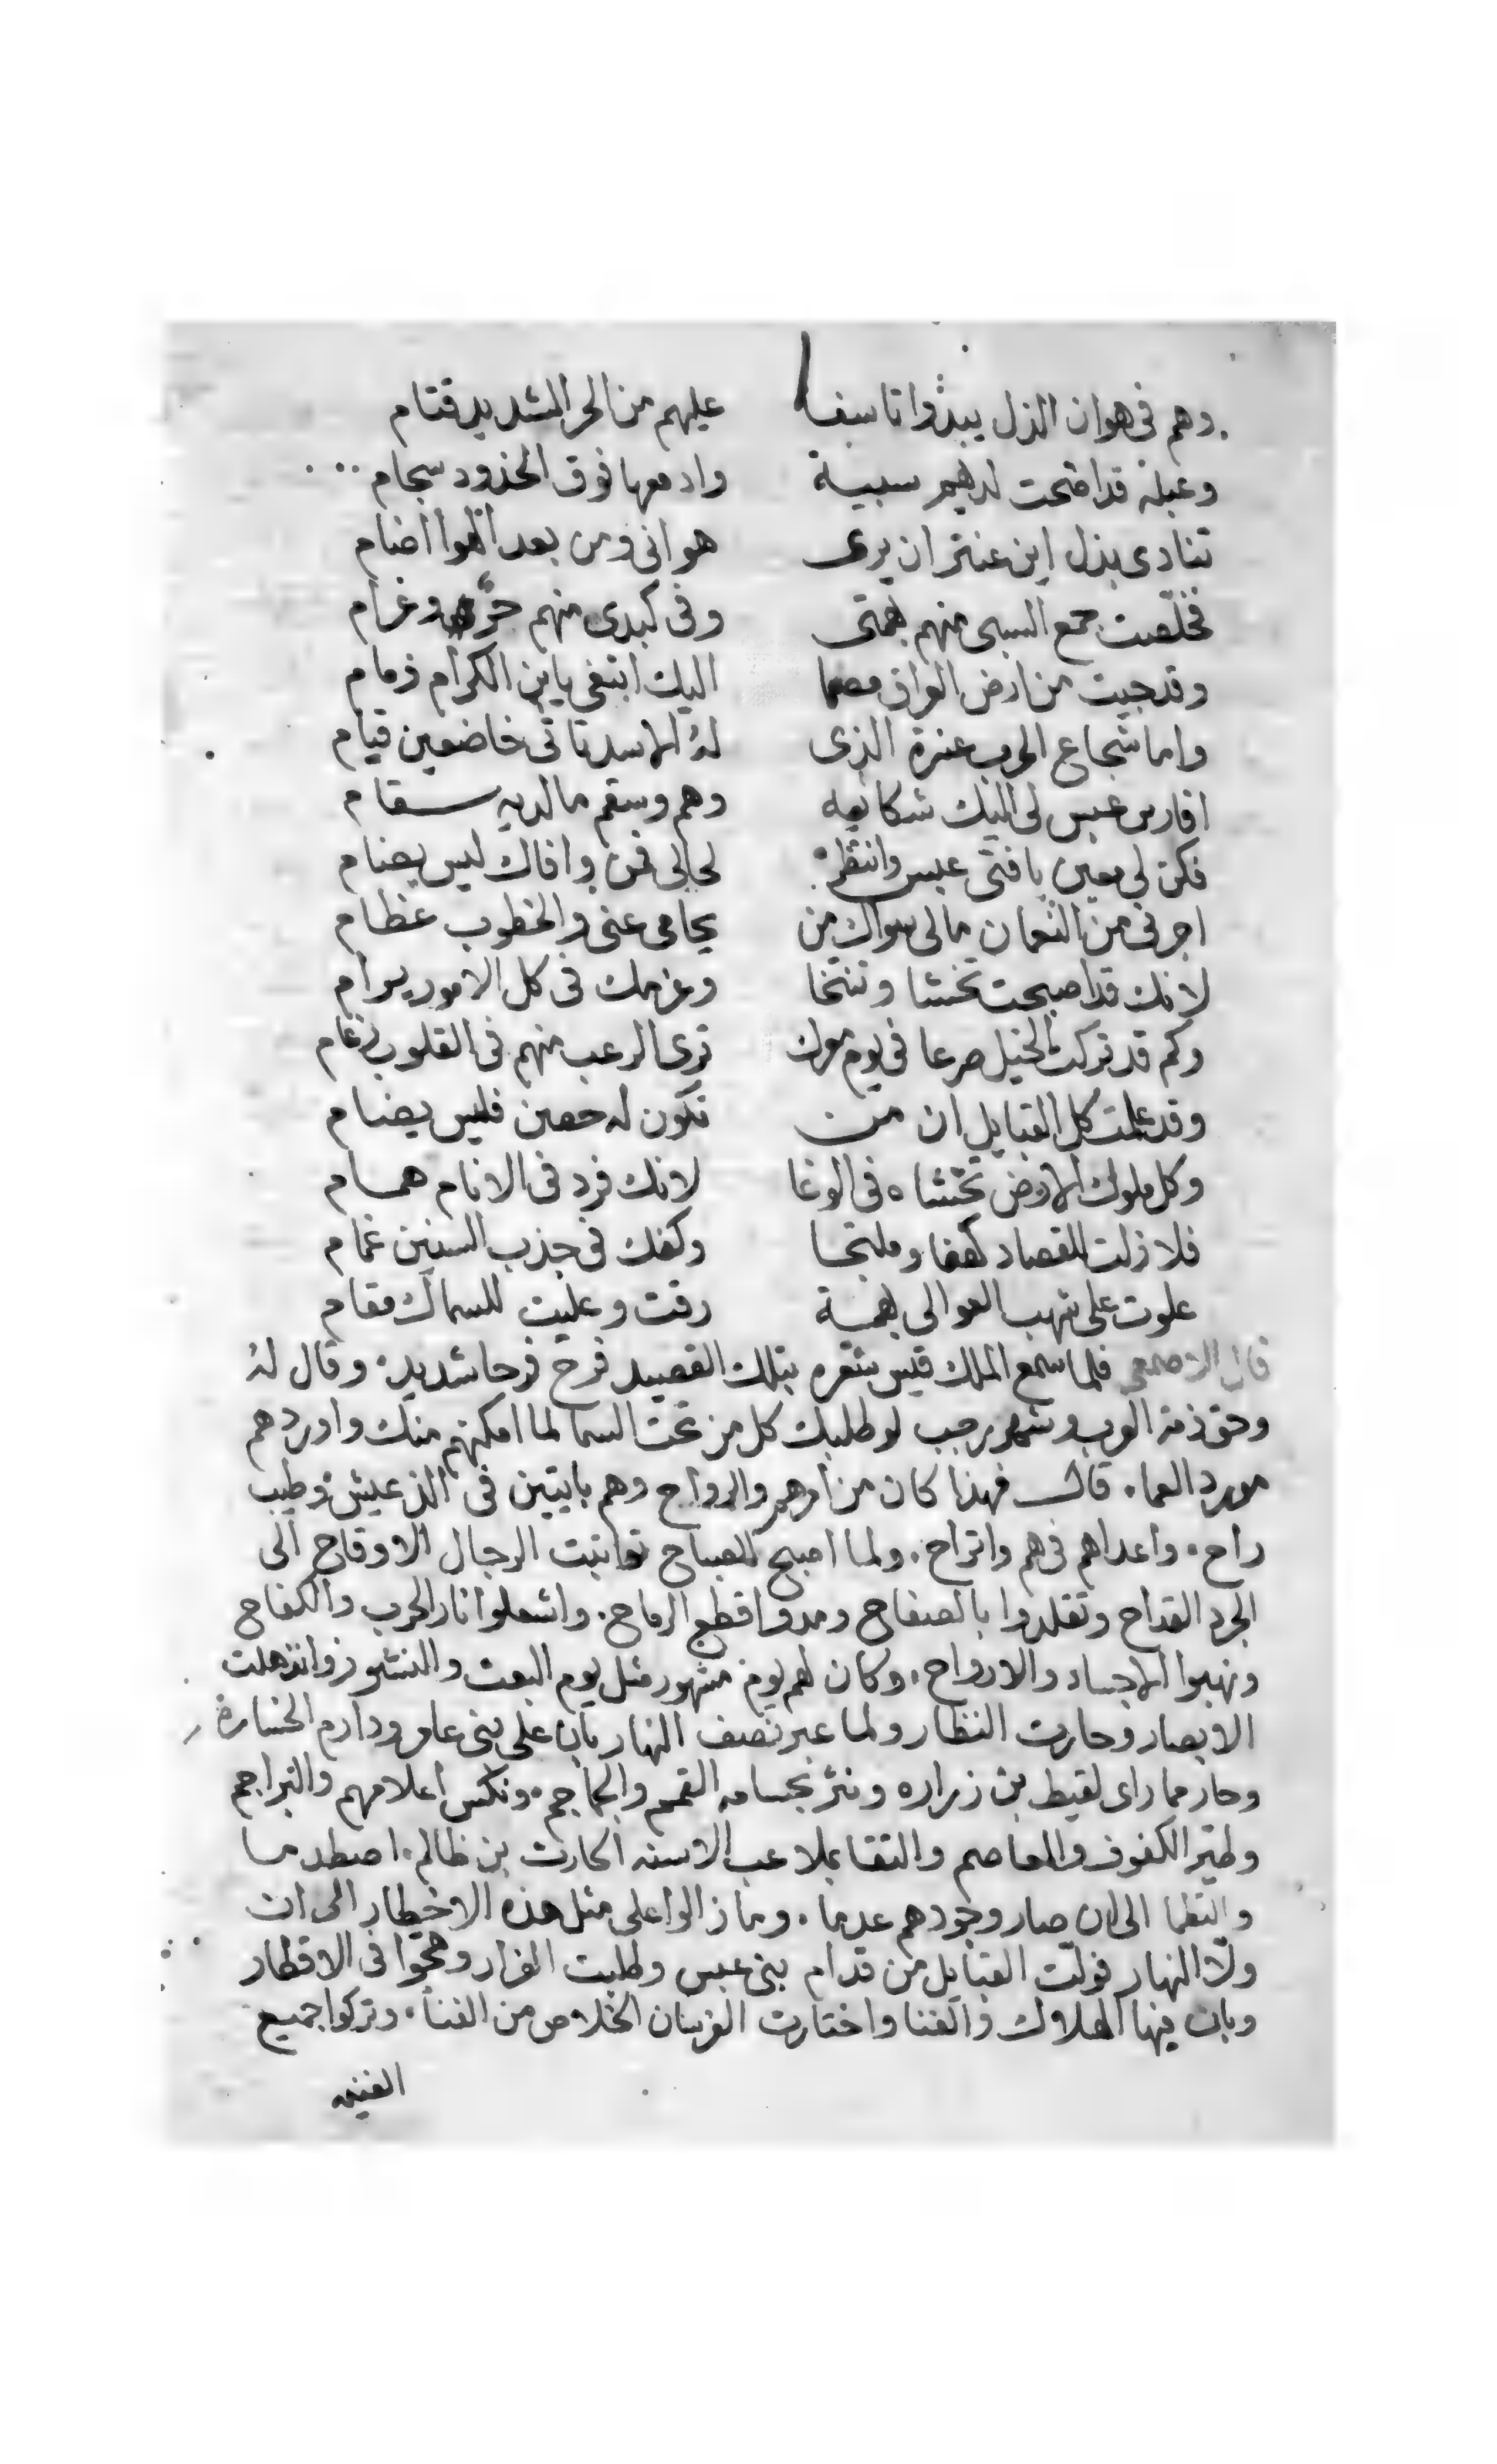 وهم فى هوان الذل يبدوا تاسفا عليهم من الحر الشديد قتام
وعبله قد اضحت لديهم سبية وادمعها فوق الخدود سجام
تنادى بذل اين عنتر ان يرى هوانى ومن بعد الهوا اضام
فخلصت جمع السبى منهم بهمتى وفى كبدى منهم حر وغرام
وقد جيت من ارض العراق مصمما اليك ابتغى يا بن الكرام ذمام
واما شجاع الحرب عنترة الذى له الاسد تاتى خاضعين قيام
افارس عبس لى اليك شكايه وهم وسقم ما لديه سقام
فكن لى معين يا فتى عبس وانتظر لحالى فمن وافاك ليس يضام
اجرنى من النعمان مالى سواك من يحامى عنى والخطوب عظام
لانك قد اصبحت تخشا وتنتخا وعزمك فى كل الامور يرام
وكم قد تركت الخيل صرعا فى يوم معرك ترى الرعب منهم فى القلوب
وقد علمت كل القبايل ان من تكون له حصن فليس يضام
وكل ملوك الارض تخشاه فى الوغا لانك فرد فى الانام همام
فلا زلت للقصاد كهفا وملتجا وكفك فى جذب السنين غمام
علوت على شهب العوالى بهمة رقت وعليت للسماك مقام
قال الاصمعى فلما سمع الملك قيس شعره بتلك القصيد فرح فرحا شديد. وقال له
وحق ذمة العرب وشهر رجب لو طلبك كل من تحت السما لما امكنهم منك واوردهم
مورد العما. قال فهذا كان من امرهم والرواح وهم بايتين فى الذ عيش وطيب
راح. واعداهم فى هم واتراح. ولما اصبح الصباح تواثبت الرجال الاوقاح الى
الجرد القداح وتقلدوا بالصفاح ومدوا قطع الرماح. واشعلوا نار الحرب والكفاح
ونهبوا الاجساد والارواح. وكان لهم يوم مشهور مثل يوم البعث والنشور وانذهلت
الابصار وحارت النظار ولما عبر نصف النهار بان على بنى عامر ودارم الخسارة
وحار مما راى لقيط بن زراره ونثر بحسامه القمم والجماجم. ونكس اعلامهم والتراجم
وطير الكفوف والمعاصم والتقا بملاعب الاسنه الحارت بن ظالم. اصطدما
والتطما الى ان صار وجودهم عدما. وما زالوا على مثل هذه الاخطار الى ان
ولا النهار فولت القبايل من قدام بنى عبس وطلبت الفرار وهجوا فى الاقطار
وبان فيها الهلاك والفنا واختارت الفرسان الخلاص من الفنا. وتركوا جميع
الغنيمه